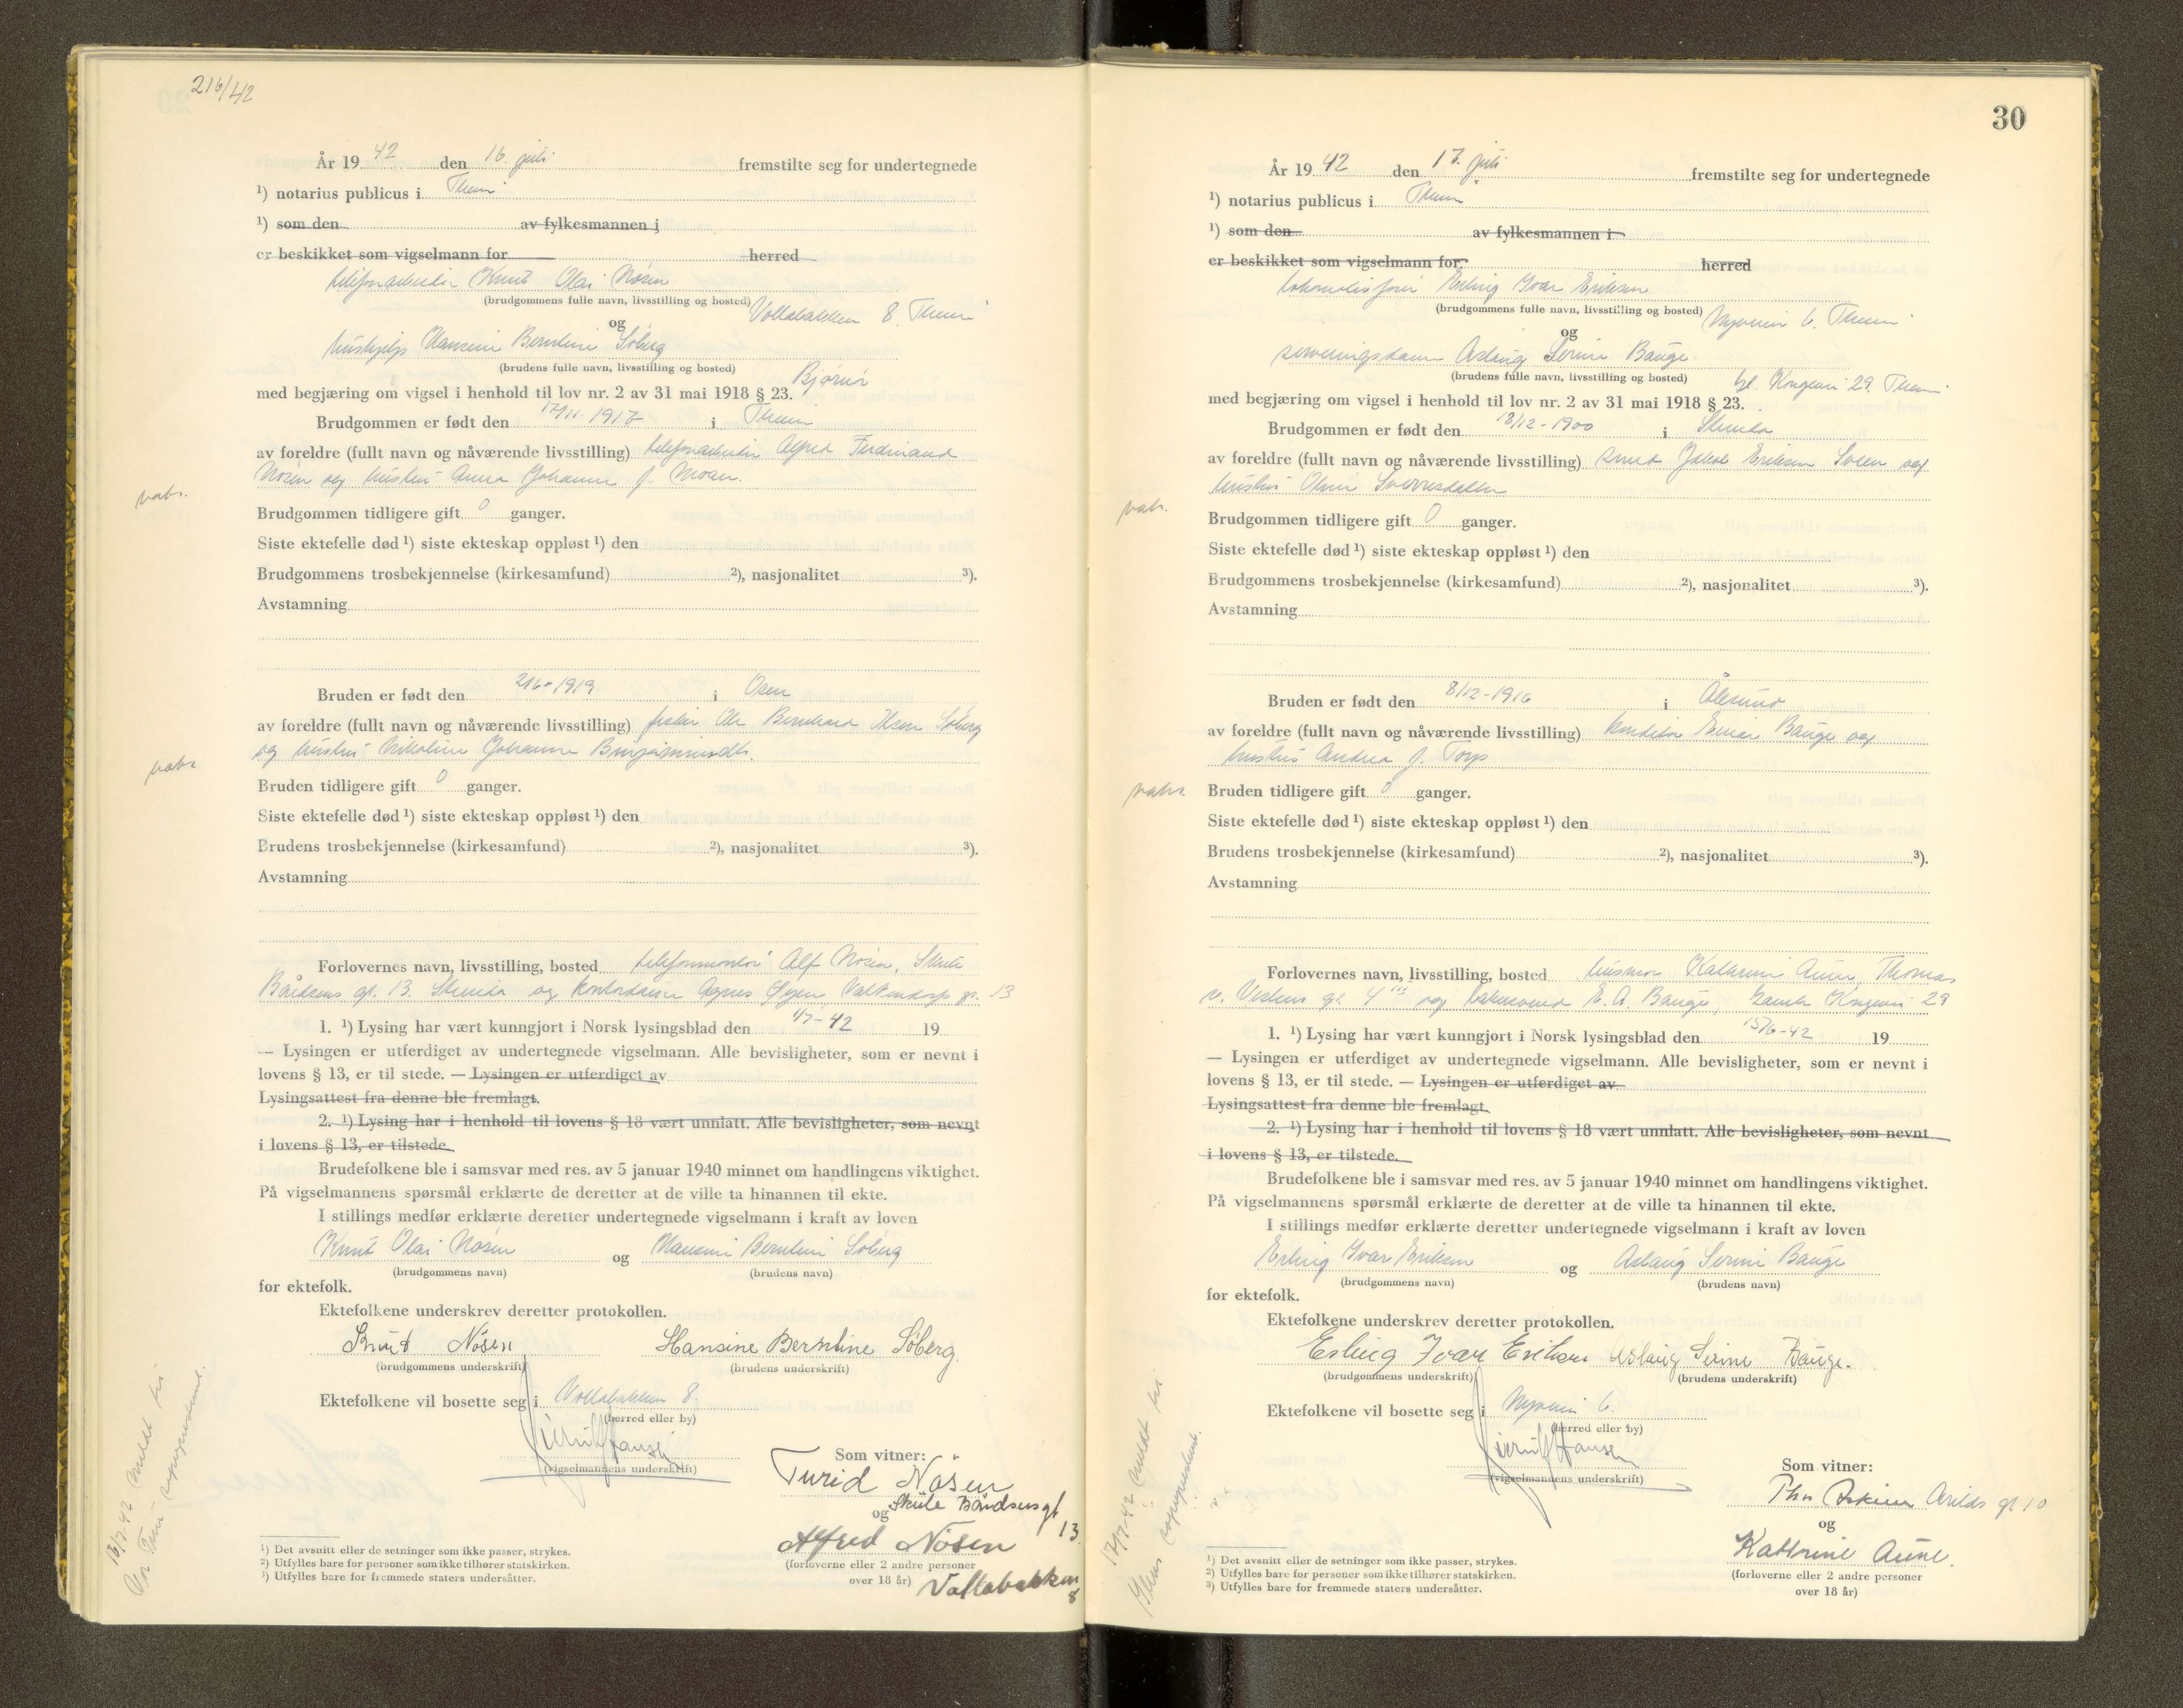 216/42
År 19 42 den 16. juli fremstilte seg for undertegnede
¹) notarius publicus i
¹) som den av fylkesmannen i
er beskikket som vigselmann for herred
telefonarbeider Knut Olai Nösen
(brudgommens fulle navn, livsstilling og bosted) Vollabakken 8.
og
hushjelp Hansine Berntine Söberg
(brudens fulle navn, livsstilling og bosted)
med begjæring om vigsel i henhold til lov nr. 2 av 31 mai 1918 § 23. Bjørnør
Brudgommen er født den 17/11-1917 i
av foreldre (fullt navn og nåværende livsstilling) telefonarbeider Alfred Ferdinand
Nösen og hustru Anna Johanna f. Moan.
vabs.
Brudgommen tidligere gift 0 ganger.
Siste ektefelle død ¹) siste ekteskap oppløst ¹) den
Brudgommens trosbekjennelse (kirkesamfund) ²), nasjonalitet ³).
Avstamning
Bruden er født den 21/6-1919 i Osen
av foreldre (fullt navn og nåværende livsstilling) fisker Ole Bernhard Söberg
og hustru Johanna
Bruden tidligere gift 0 ganger.
Siste ektefelle død ¹) siste ekteskap oppløst ¹) den
Brudens trosbekjennelse (kirkesamfund) ²), nasjonalitet ³).
Avstamning
Forlovernes navn, livsstilling, bosted telefonmontør Alf Nösen, Skule
Bårdsens gt. 13. Strinda og kontordame Agnes gt. 13
1. ¹) Lysing har vært kunngjort i Norsk lysingsblad den 4/7-42 19
— Lysingen er utferdiget av undertegnede vigselmann. Alle bevisligheter, som er nevnt i
lovens § 13, er til stede. — Lysingen er utferdiget av
Lysingsattest fra denne ble fremlagt.
2. ¹) Lysing har i henhold til lovens § 18 vært unnlatt. Alle bevisligheter, som nevnt
i lovens § 13, er tilstede.
Brudefolkene ble i samsvar med res. av 5 januar 1940 minnet om handlingens viktighet.
På vigselmannens spørsmål erklærte de deretter at de ville ta hinannen til ekte.
I stillings medfør erklærte deretter undertegnede vigselmann i kraft av loven
Knut Olai Nösen og Hansine Berntine Söberg
(brudgommens navn) (brudens navn)
for ektefolk.
Ektefolkene underskrev deretter protokollen.
Knut Nösen Hansine Berntine Söberg.
(brudgommens underskrift) (brudens underskrift)
Ektefolkene vil bosette seg i Vollabakken 8.
(herred eller by)
(vigselmannens underskrift)
Som vitner:
Turid Nösen
Skule Bårdsens gt
og 13.
Alfred Nösen
(forloverne eller 2 andre personer
over 18 år) Vollabakken
8
16/7-42 meldt til
¹) Det avsnitt eller de setninger som ikke passer, strykes.
²) Utfylles bare for personer som ikke tilhører statskirken.
³) Utfylles bare for fremmede staters undersåtter.
30
År 19 42 den 17. juli fremstilte seg for undertegnede
¹) notarius publicus i
¹) som den av fylkesmannen i
er beskikket som vigselmann for herred
Erling Ivar Eriksen
(brudgommens fulle navn, livsstilling og bosted) Nyveien 6.
og
serveringsdame Aslaug Serine Bauge
(brudens fulle navn, livsstilling og bosted) gl. Kongevei 29.
med begjæring om vigsel i henhold til lov nr. 2 av 31 mai 1918 § 23.
Brudgommen er født den 18/12-1900 i Strinda
av foreldre (fullt navn og nåværende livsstilling) smed Jakob Eriksen og
hustru
vabs.
Brudgommen tidligere gift 0 ganger.
Siste ektefelle død ¹) siste ekteskap oppløst ¹) den
Brudgommens trosbekjennelse (kirkesamfund) ²), nasjonalitet ³).
Avstamning
Bruden er født den 8/12-1916 i Ålesund
av foreldre (fullt navn og nåværende livsstilling) konditor Einar Bauge og
hustru Andrea f. Torp
vabs.
Bruden tidligere gift 0 ganger.
Siste ektefelle død ¹) siste ekteskap oppløst ¹) den
Brudens trosbekjennelse (kirkesamfund) ²), nasjonalitet ³).
Avstamning
Forlovernes navn, livsstilling, bosted husmor Kathrine Aune, Thomas
v. gt. 4 og E. A. Bauge, Kongevei 29
1. ¹) Lysing har vært kunngjort i Norsk lysingsblad den 15/6-42 19
— Lysingen er utferdiget av undertegnede vigselmann. Alle bevisligheter, som er nevnt i
lovens § 13, er til stede. — Lysingen er utferdiget av
Lysingsattest fra denne ble fremlagt.
2. ¹) Lysing har i henhold til lovens § 18 vært unnlatt. Alle bevisligheter, som nevnt
i lovens § 13, er tilstede.
Brudefolkene ble i samsvar med res. av 5 januar 1940 minnet om handlingens viktighet.
På vigselmannens spørsmål erklærte de deretter at de ville ta hinannen til ekte.
I stillings medfør erklærte deretter undertegnede vigselmann i kraft av loven
Erling Ivar Eriksen og Aslaug Serine Bauge
(brudgommens navn) (brudens navn)
for ektefolk.
Ektefolkene underskrev deretter protokollen.
Erling Ivar Eriksen Aslaug Serine Bauge.
(brudgommens underskrift) (brudens underskrift)
Ektefolkene vil bosette seg i Nyveien 6.
(herred eller by)
(vigselmannens underskrift)
Som vitner:
Arilds gt 10
og
Kathrine Aune.
(forloverne eller 2 andre personer
over 18 år)
17/7-42 meldt til
¹) Det avsnitt eller de setninger som ikke passer, strykes.
²) Utfylles bare for personer som ikke tilhører statskirken.
³) Utfylles bare for fremmede staters undersåtter.